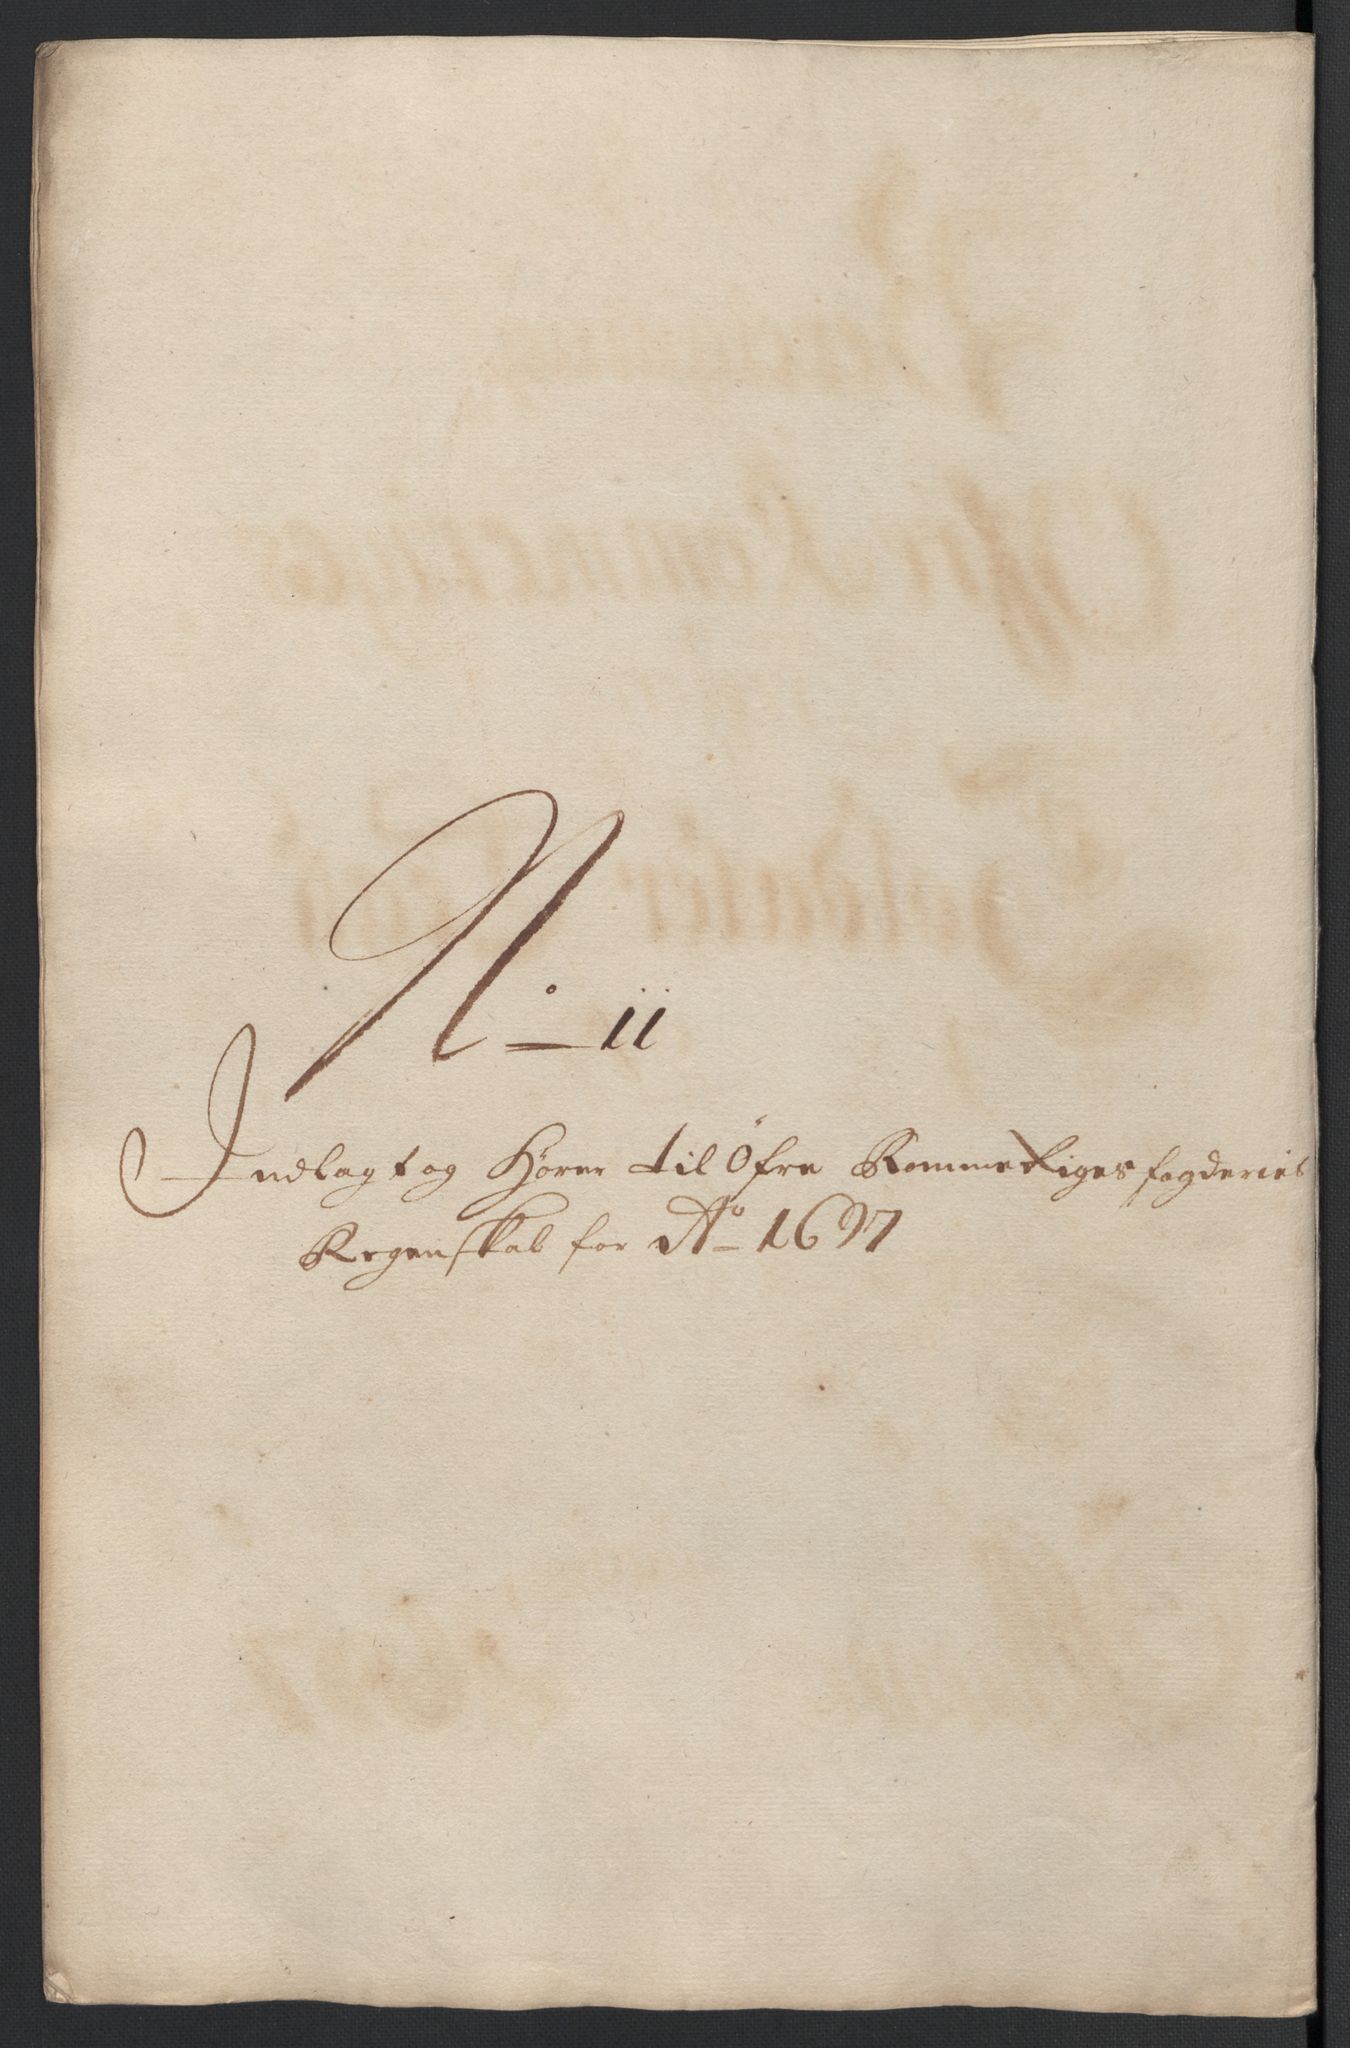 No 11
Indlagt og Hörer til Öfre Rommeriges fogderies
Regenskab for Ao 1697